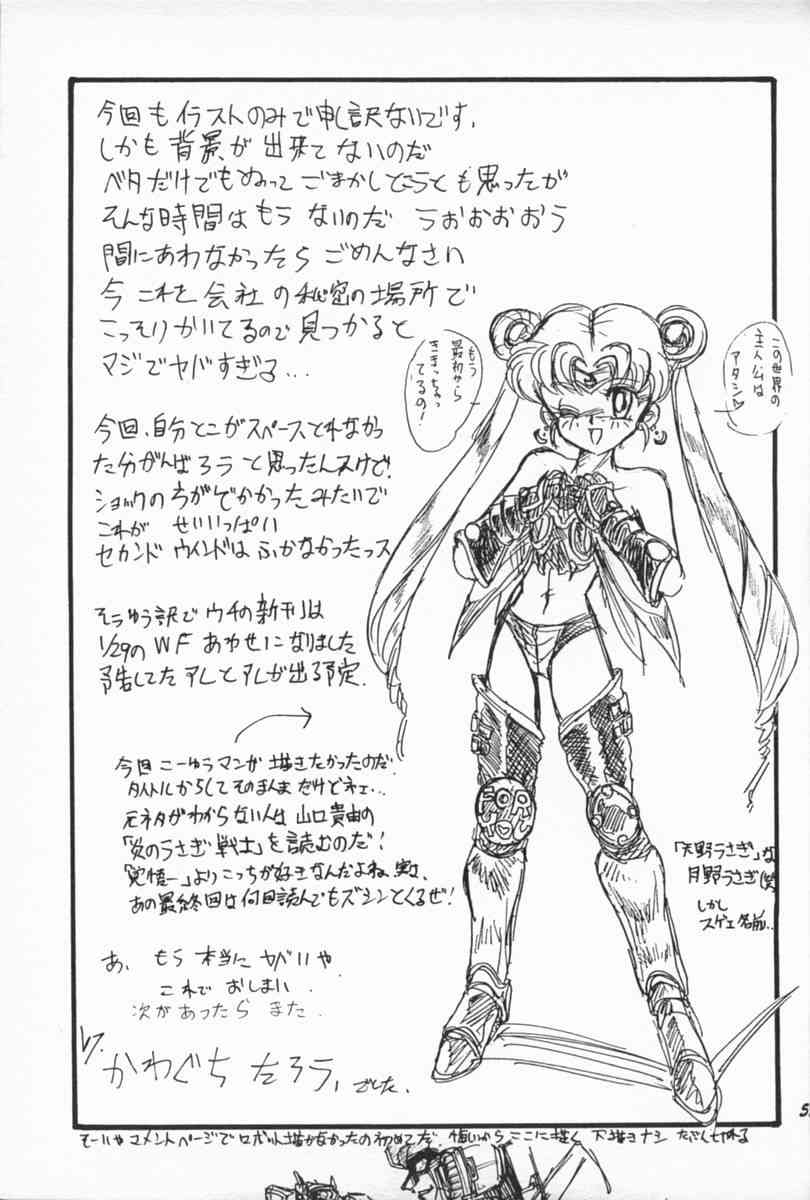 今回もイラストのみで申し訳ないです。
しかも背景が出来てないのだ
ベタだけでもぬってごまかしとこうとも思ったが
そんな時間はもうないのだ うおおおおう
間にあわなかったらごめんなさい
今これを会社の秘密の場所で
こっそりかいてるので見つかると
マジでヤバすぎる...
今回、自分とこがスペースとれなかっ
た分がんばろうと思ったんスけど!
ショックのほうがでかかったみたいで
これが せいいっぱい
セカンドウインドはふかなかったっス
そーゆう訳でウチの新刊は
1/29のWFあわせになりました
予告してたアレとアレが出る予定。
今回こーゆうマンガ描きたかったのだ!
タイトルからしてそのまんまだけどネェ...
元ネタがわからない人は山口貴由の
「炎のうさぎ戦士」を読むのだ!
「覚悟ー」よりこっちが好きなんだよね、実は、
あの最終回は何回読んでもズシンとくるぜ!
あ、もう本当にヤバいや。
これでおしまい。
次があったらまた
かわぐちたろう、でした。
もう
最初から
てるの!
この世界の
主人公は
アタシ♡
「天野うさぎ」な
月野うさぎ(笑
しかし
スゲェ名前..
コメントページでロボット描かなかったの初めてだ。悔いからここに描く 下描きナシ
5